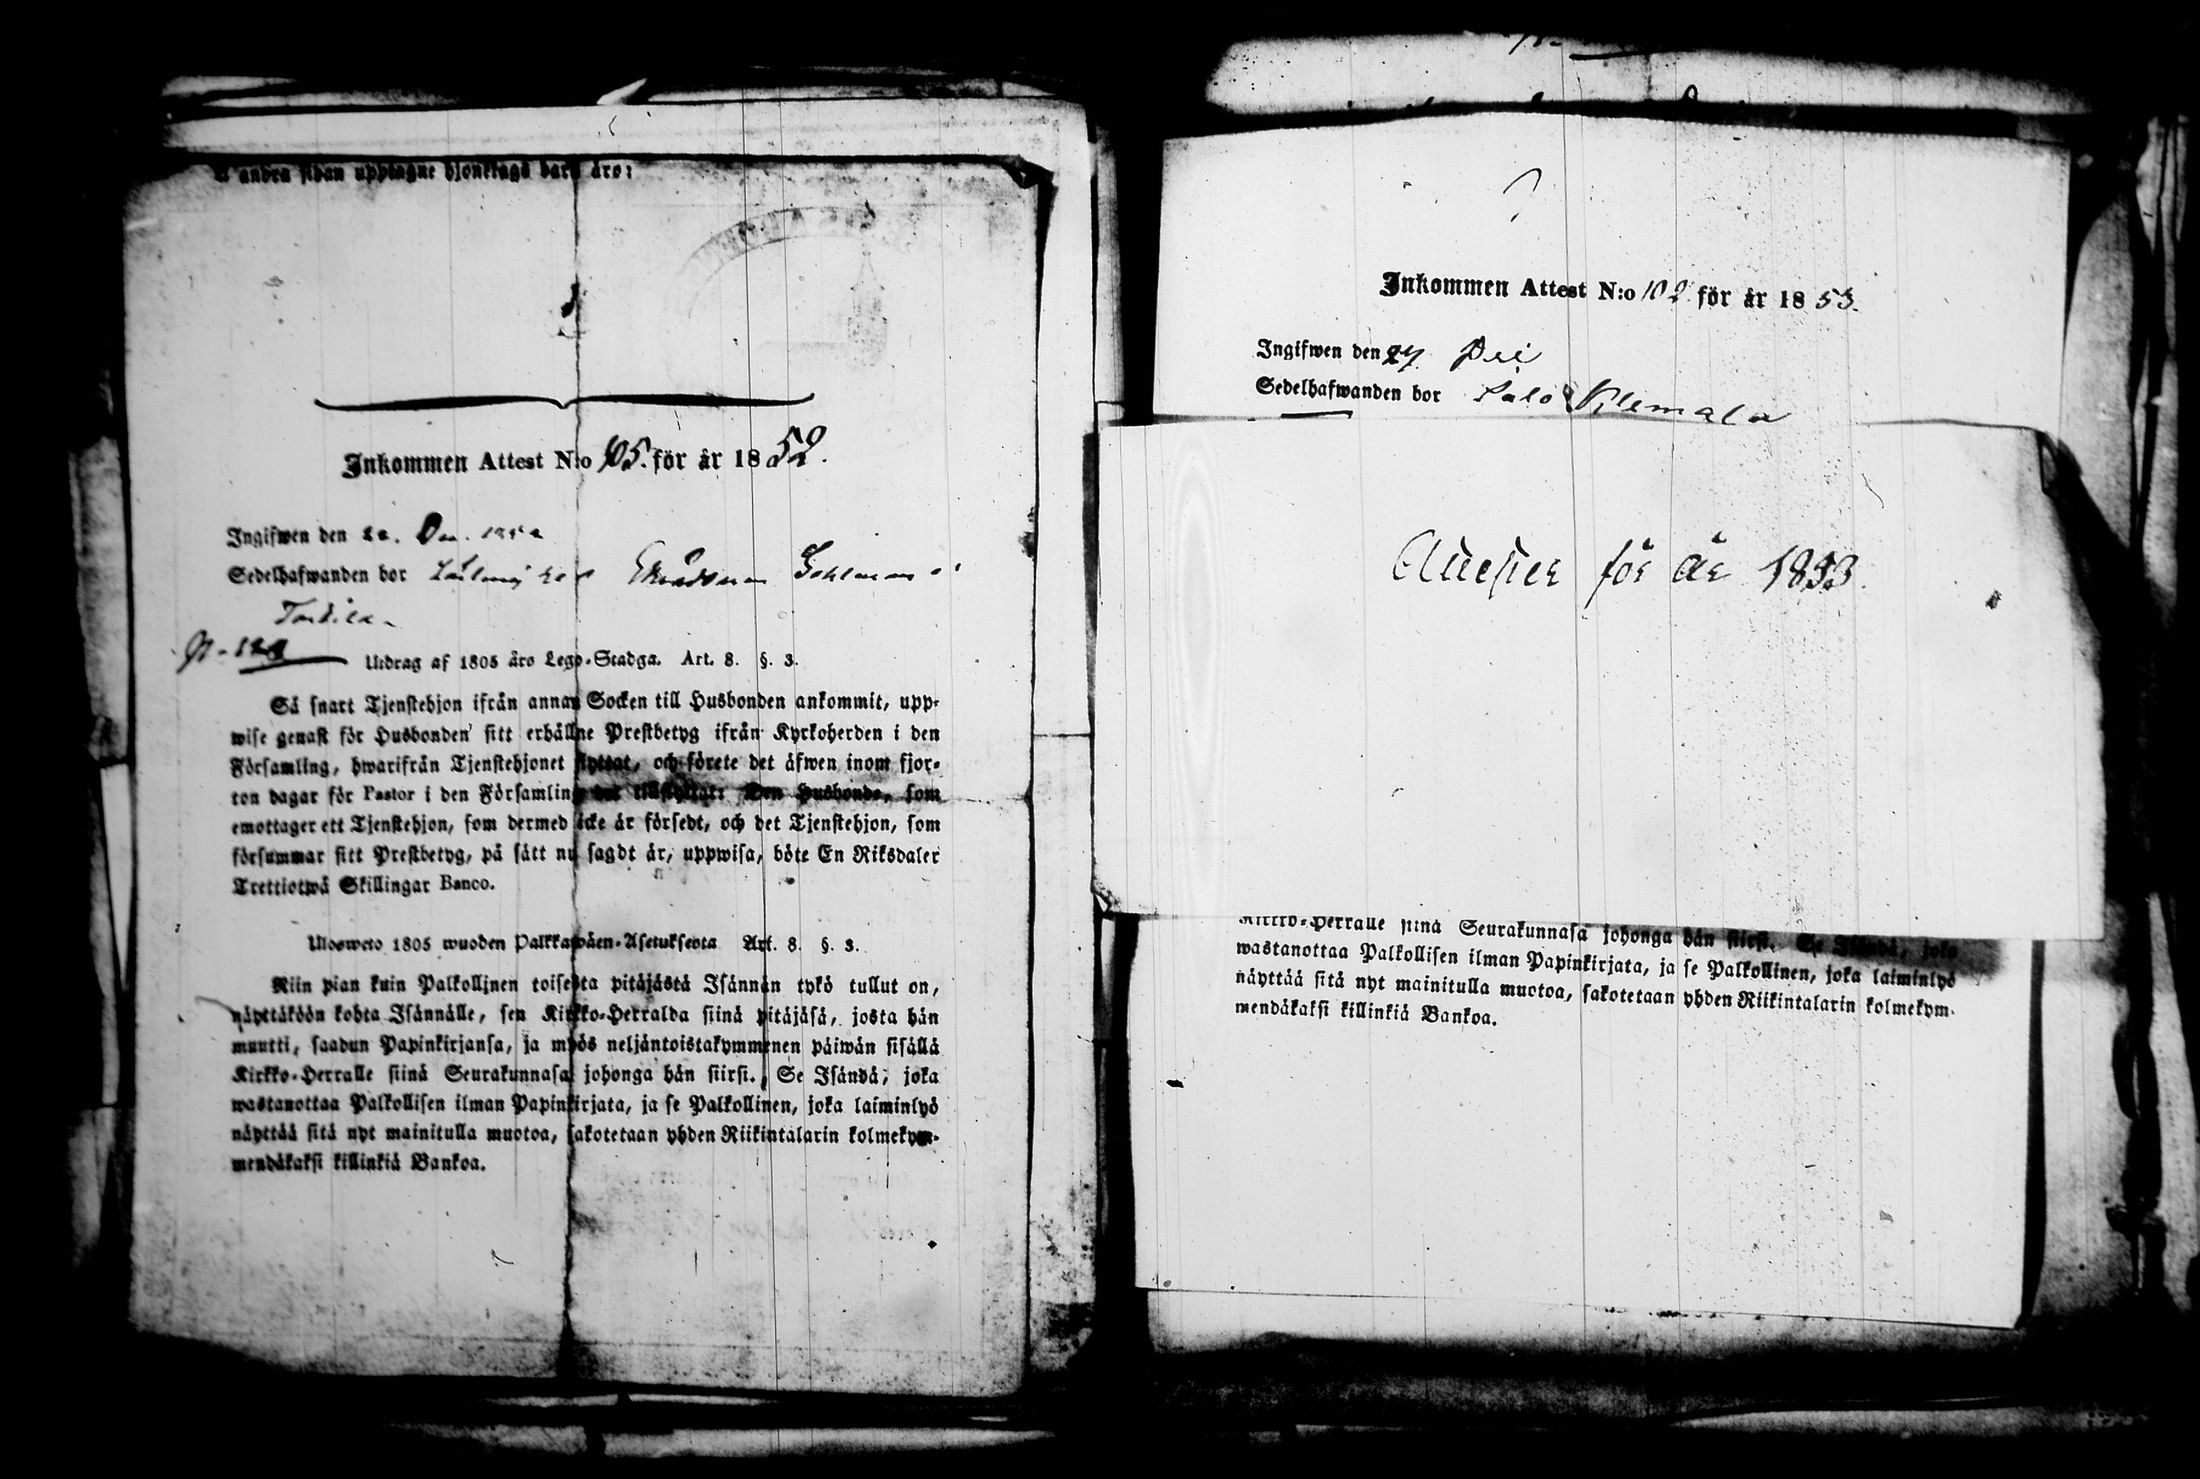 å andra sidan upptagne hjonelags barn äro:
Inkommen Attest N:o 65. för år 1852.
Ingifwen den 22. Dec. 1852
Sedelhafwanden bor
N. 128
Utdrag af 1805 års Lego-Stadga. Art. 8. §. 3.
Så snart Tjenstehjon ifrån annan Socken till Husbonden ankommit, upp-
wise genast för Husbonden sitt erhållne Prestbetyg ifrån Kyrkoherden i den
Församling, hwarifrån Tjenstehjonet flyttat, och förete det äfwen inom fjor-
ton dagar för Pastor i den Församling det tillflyttat: Den Husbonde, som
emottager ett Tjenstehjon, som dermed icke är försedt, och det Tjenstehjon, som
försummar sitt Prestbetyg, på sätt nu sagdt är, uppwisa, böte En Riksdaler
Trettiotwå Skillingar Banco.
Ulosweto 1805 wuoden Palkkawäen-Asetuksesta Art. 8. §. 3.
Niin pian kuin Palkollinen toisesta pitäjästä Isännän tykö tullut on,
näyttäköön kohta Isännälle, sen Kirkko-Herralda siinä pitäjäsä, josta hän
muutti, saadun Papinkirjansa, ja myös neljäntoistakymmenen päiwän sisällä
Kirkko-Herralle siinä Seurakunnasa johonga hän siirsi. Se Isändä, joka
wastanottaa Palkollisen ilman Papinkirjata, ja se Palkollinen, joka laiminlyö
näyttää sitä nyt mainitulla muotoa, sakotetaan yhden Riikintalarin kolmekym-
mendäkaksi killinkiä Bankoa.
Inkommen Attest N:o 102 för år 1853.
Ingifwen den 27.
Sedelhafwanden bor Salo Klemala
Attester för år 1853.
Kirkko-Herralle siinä Seurakunnasa johonga hän siirsi. Se Isändä, joka
wastanottaa Palkollisen ilman Papinkirjata, ja se Palkollinen, joka laiminlyö
näyttää sitä nyt mainitulla muotoa, sakotetaan yhden Riikintalarin kolmekym-
mendäkaksi killinkiä Bankoa.